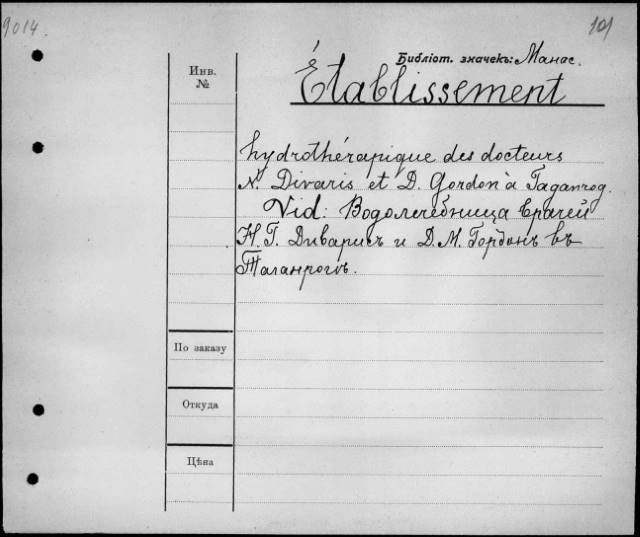 9014.
101
Библіот. значекъ: Манас.
Инв.
№
Établissement
hydrothérapique des docteurs
N. Divaris et D. Gordon à Taganrog.
Vid: Водолечебница врачей
Н. Г. Диварисъ и Д. М. Гордонъ въ
Таганрогѣ.
По заказу
Откуда
Цѣна